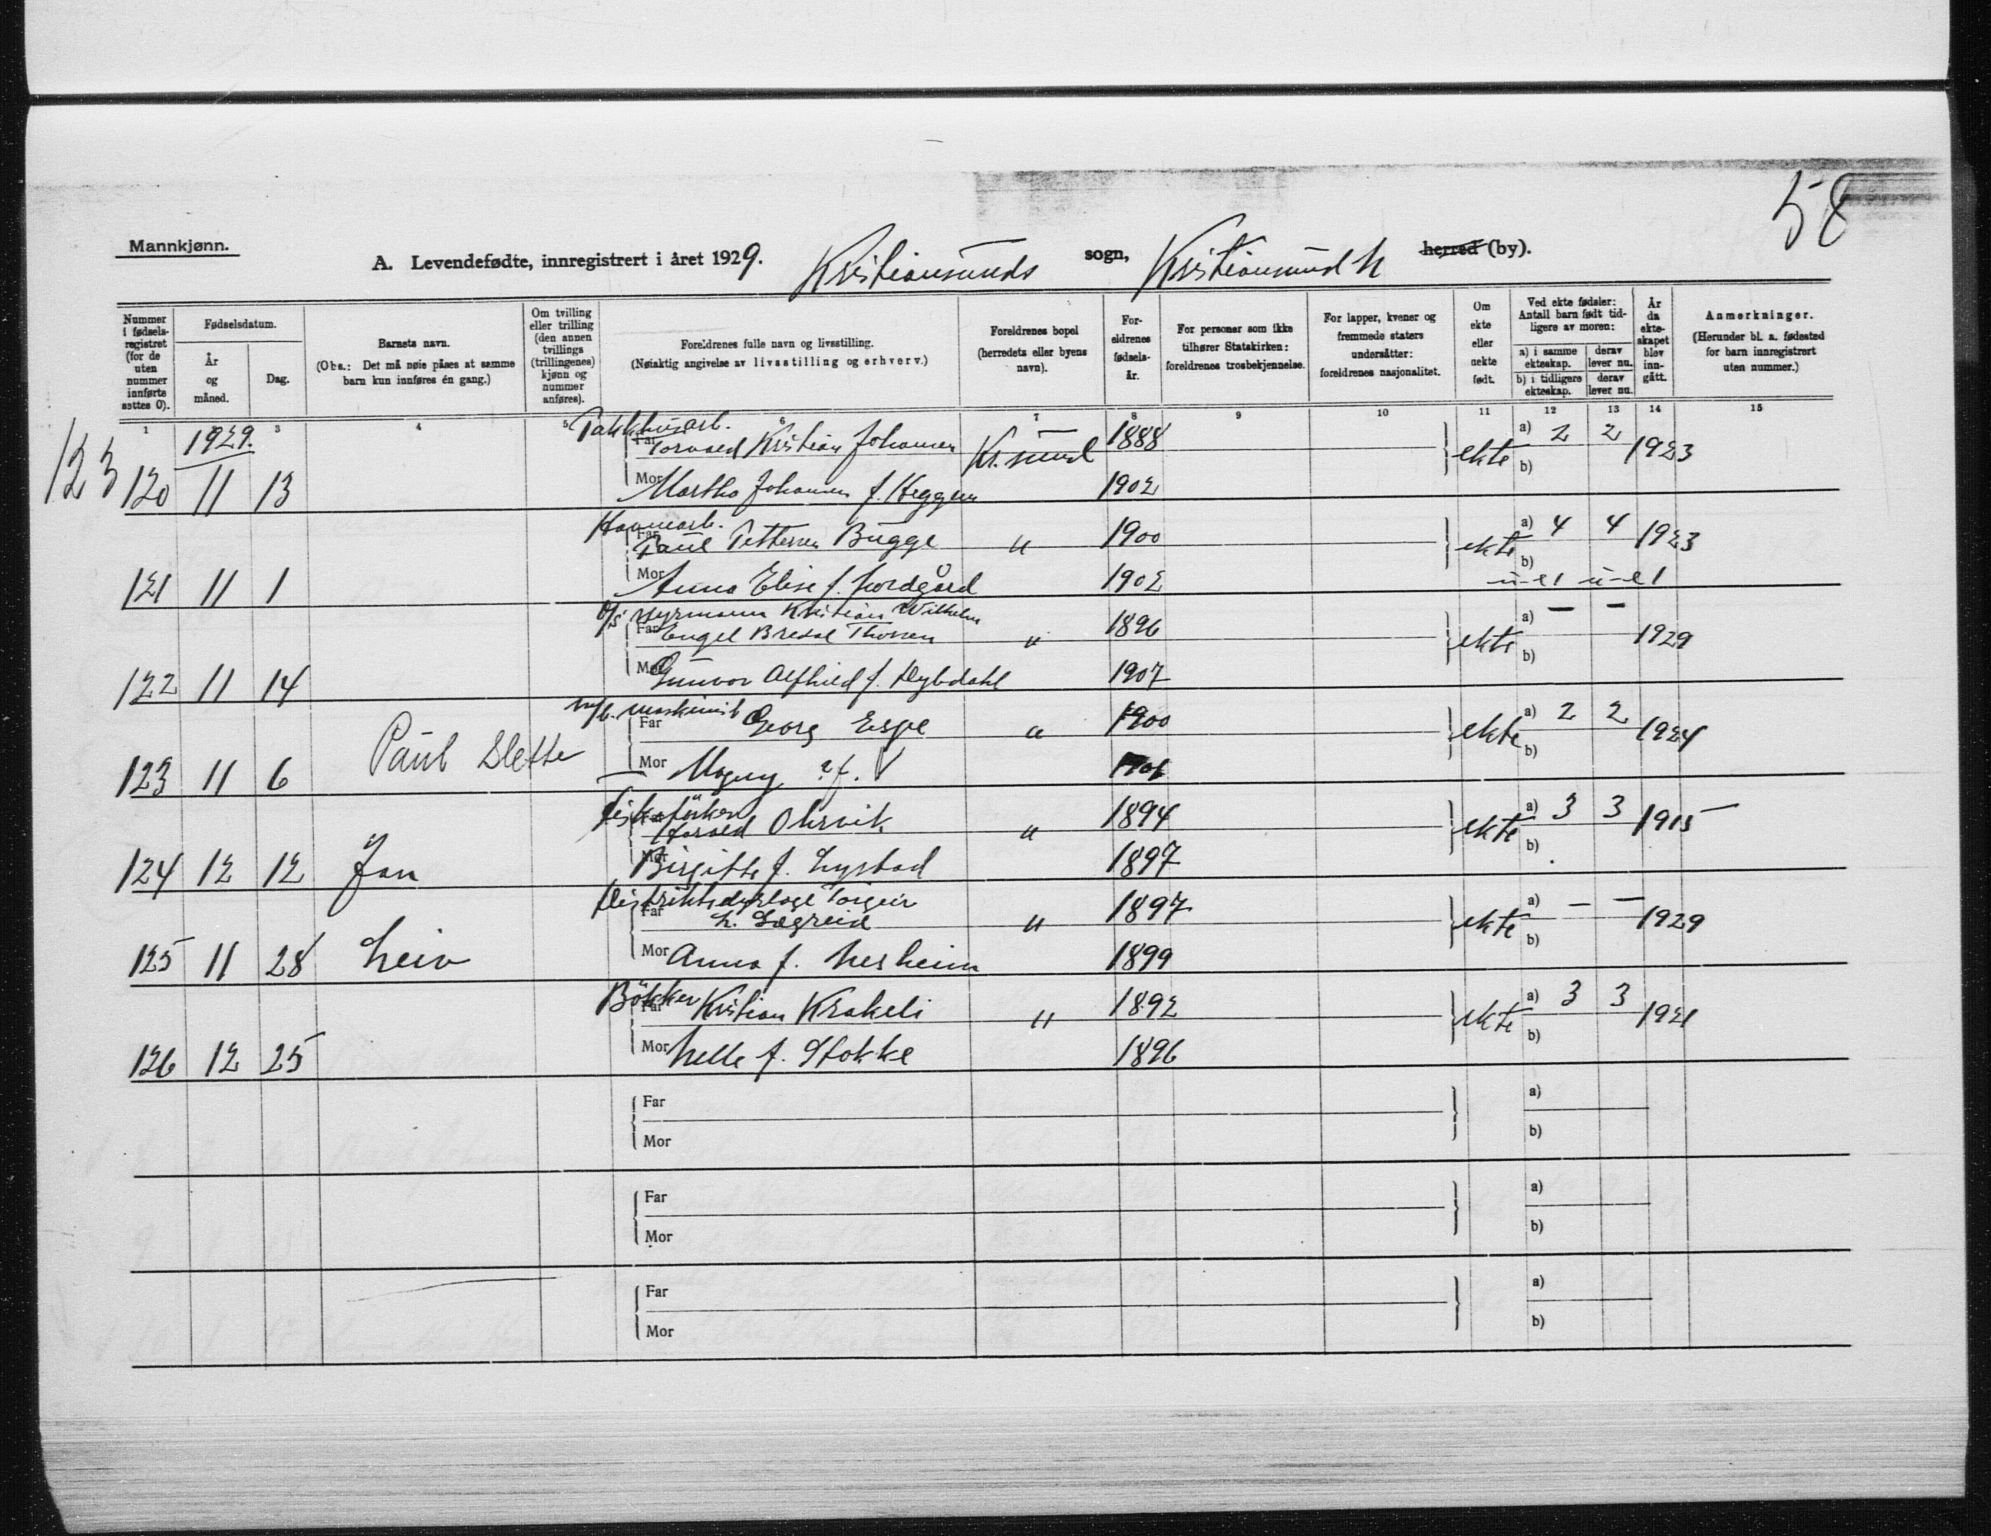 58
Mannkjønn.
A. Levendefødte, innregistrert i året 1929. Kristiansunds sogn, Kristiansund N herred (by).
Nummer i fødselsregistret (for de uten nummer innførte settes 0).
Fødselsdatum.
År og måned.
Dag.
Barnets navn.
(Obs.: Det må nøie påses at samme barn kun innføres én gang.)
Om tvilling eller trilling (den annen tvillings (trillingenes) kjønn og nummer anføres).
Foreldrenes fulle navn og livsstilling.
(Nøiaktig angivelse av livsstilling og erhverv.)
Foreldrenes bopel (herredets eller byens navn).
Foreldrenes fødselsår.
For personer som ikke tilhører Statskirken: foreldrenes trosbekjennelse.
For lapper, kvener og fremmede staters undersåtter: foreldrenes nasjonalitet.
Om ekte eller uekte født.
Ved ekte fødsler: Antall barn født tidligere av moren:
a) i samme ekteskap. derav lever nu.
b) i tidligere ekteskap. derav lever nu.
År da ekteskapet blev inngått.
Anmerkninger.
(Herunder bl. a. fødested for barn innregistrert uten nummer.)
1 3 4 5 6 7 8 9 10 11 12 13 14 15
123
1929.
Pakkhusarb.
Far Torvald Kristian Johansen Kr.sund 1888 ekte a) 2 2 1923
b)
120 11 13 Mor Martha Johansen f. Heggem 1902
Havnearb.
Far Paul Pettersen Bugge " 1900 ekte a) 4 4 1923
b)
121 11 1 Mor Anna Elise f. Nordgård 1902
Styrmann Kristian Wilhelm
Far Engel Bredal Thorsen " 1896 ekte a) — — 1929
b)
122 11 14 Mor Gunvor Alfhild f. Dybdahl 1907
maskinist
Far Georg Espe " 1900 ekte a) 2 2 1924
b)
123 11 6 Paul Slette Mor Magny ? f. 1901
Far Harald Ohrvik " 1894 ekte a) 3 3 1915
b)
124 12 12 Jan Mor Birgitte f. Lystad 1897
Distriktsdyrlæge Torgeir
Far L. Lægreid " 1897 ekte a) — — 1929
b)
125 11 28 Leiv Mor Anna f. Nesheim 1899
Bökker
Far Kristian Krakeli " 1892 ekte a) 3 3 1921
b)
126 12 25 Mor Nelle f. Stokke 1896
Far a)
Mor b)
Far a)
Mor b)
Far a)
Mor b)